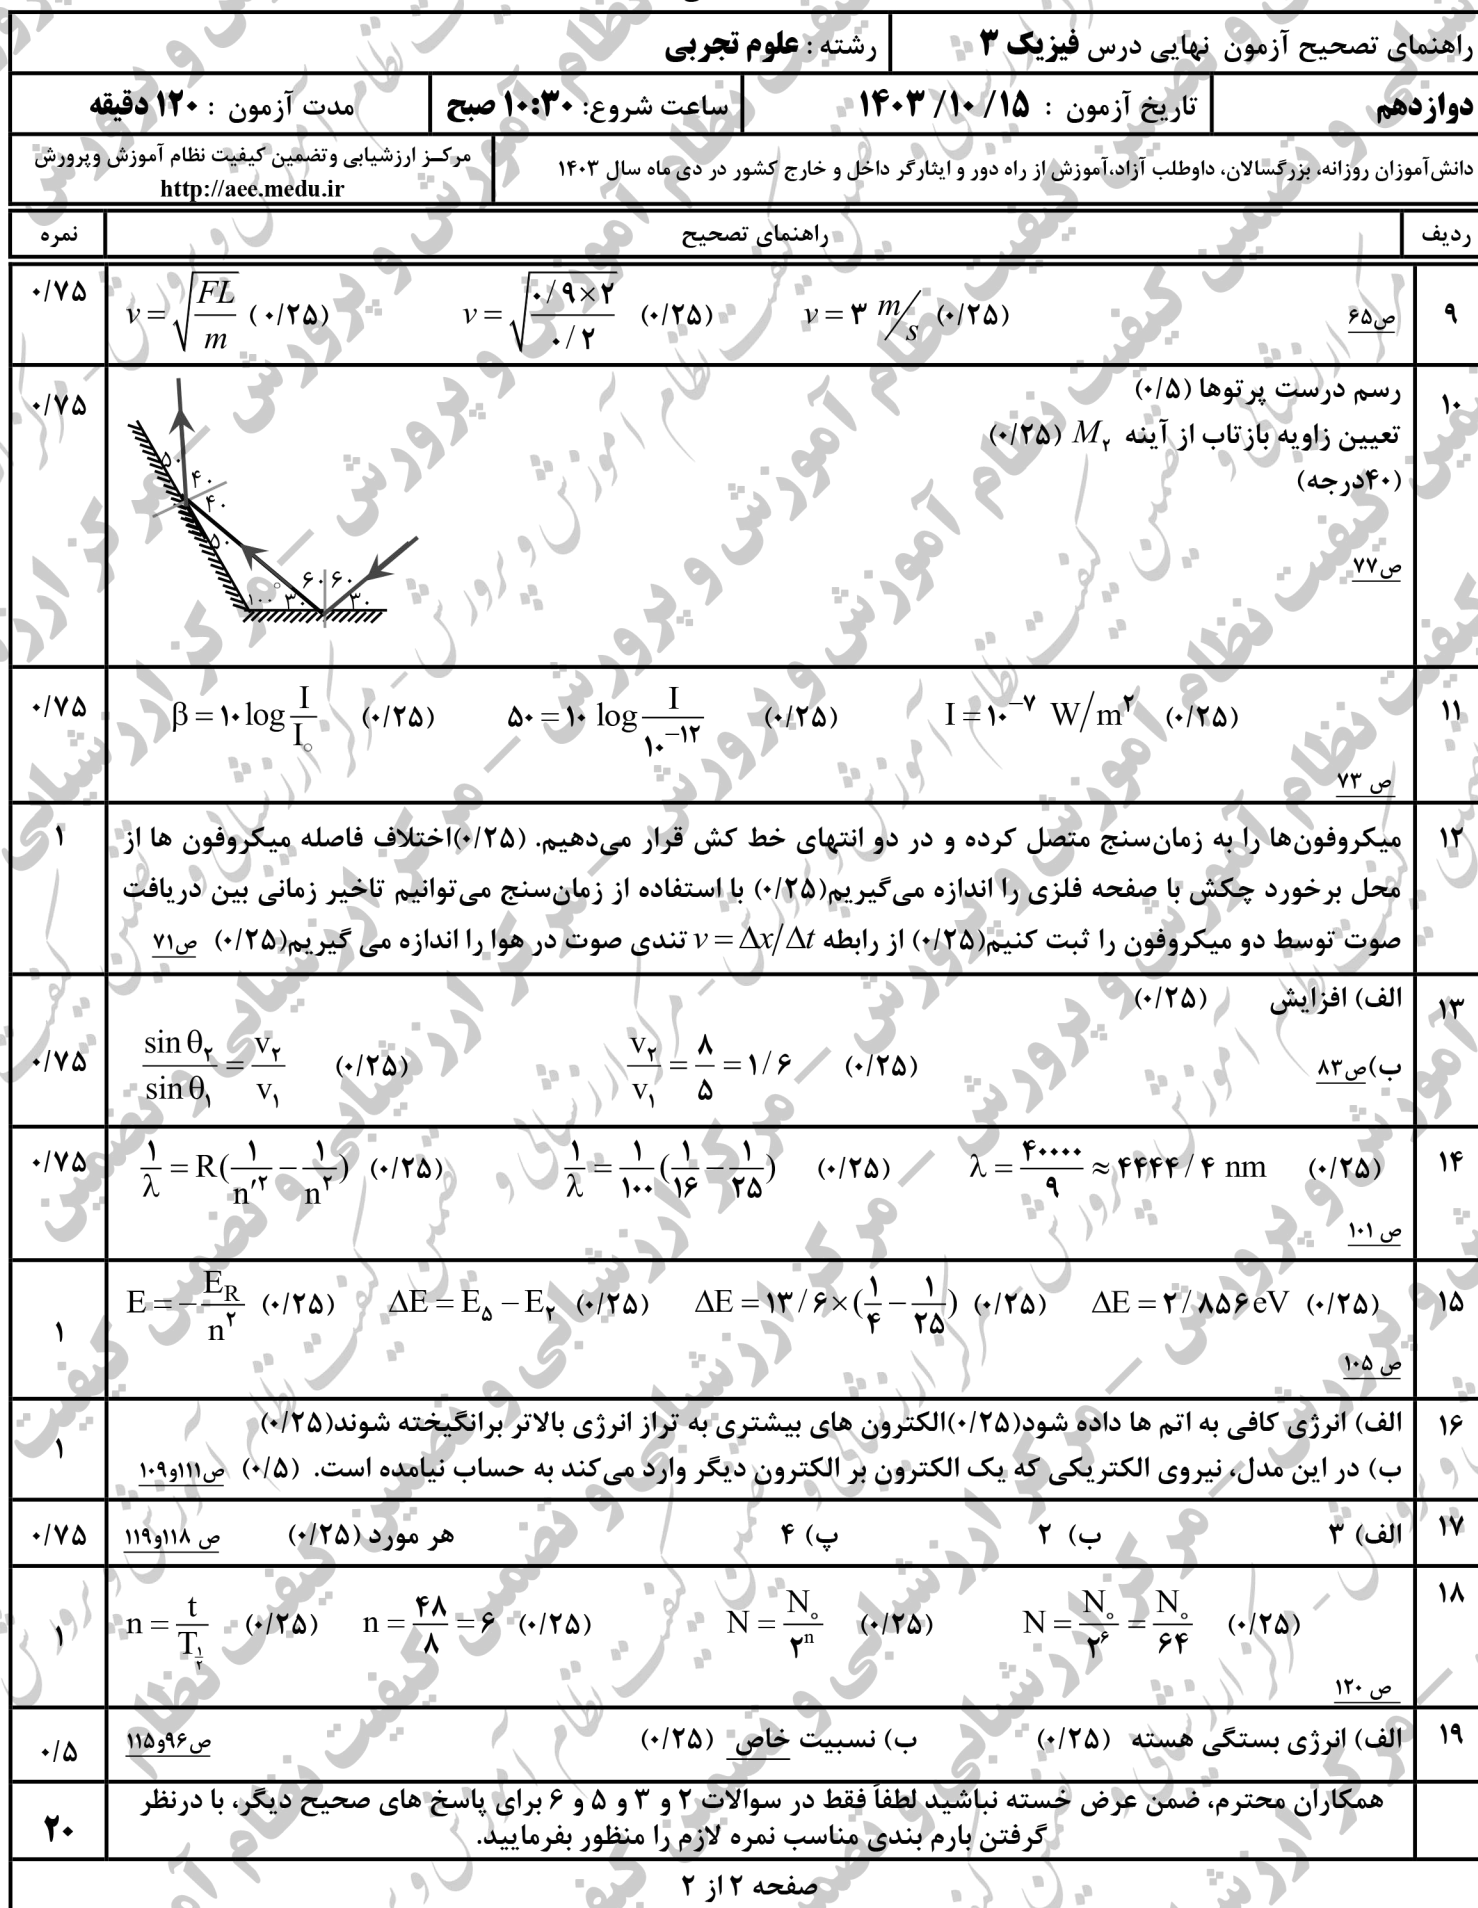 راهنمای تصحیح آزمون نهایی درس فیزیک ۳ رشته : علوم تجربی
دوازدهم تاریخ آزمون : ۱۵/ ۱۰/ ۱۴۰۳ ساعت شروع: ۱۰:۳۰ صبح مدت آزمون : ۱۲۰ دقیقه
دانش‌آموزان روزانه، بزرگسالان، داوطلب آزاد،آموزش از راه دور و ایثارگر داخل و خارج کشور در دی ماه سال ۱۴۰۳ مرکـز ارزشیابی وتضمین کیفیت نظام آموزش وپرورش
http://aee.medu.ir
ردیف راهنمای تصحیح نمره
۹ v = √(FL/m) (۰/۲۵) v = √(۰/۹×۲ / ۰/۲) (۰/۲۵) v = ۳ m/s (۰/۲۵) ص۶۵ ۰/۷۵
۱۰ رسم درست پرتوها (۰/۵) ۰/۷۵
تعیین زاویه بازتاب از آینه M۲ (۰/۲۵)
(۴۰درجه)
ص۷۷
۵۰
۴۰
۴۰
۵۰
۶۰ ۶۰
۱۰۰° ۳۰ ۳۰
۱۱ β = ۱۰ log I/I○ (۰/۲۵) ۵۰ = ۱۰ log I/۱۰^−۱۲ (۰/۲۵) I = ۱۰^−۷ W/m^۲ (۰/۲۵) ۰/۷۵
ص ۷۳
۱۲ میکروفون‌ها را به زمان‌سنج متصل کرده و در دو انتهای خط کش قرار می‌دهیم. (۰/۲۵)اختلاف فاصله میکروفون ها از ۱
محل برخورد چکش با صفحه فلزی را اندازه می‌گیریم(۰/۲۵) با استفاده از زمان‌سنج می‌توانیم تاخیر زمانی بین دریافت
صوت توسط دو میکروفون را ثبت کنیم(۰/۲۵) از رابطه v = Δx/Δt تندی صوت در هوا را اندازه می گیریم(۰/۲۵) ص۷۱
۱۳ الف) افزایش (۰/۲۵)
ب)ص۸۳ sin θ۲/sin θ۱ = v۲/v۱ (۰/۲۵) v۲/v۱ = ۸/۵ = ۱/۶ (۰/۲۵) ۰/۷۵
۱۴ ۱/λ = R(۱/n′^۲ − ۱/n^۲) (۰/۲۵) ۱/λ = ۱/۱۰۰(۱/۱۶ − ۱/۲۵) (۰/۲۵) λ = ۴۰۰۰۰/۹ ≈ ۴۴۴۴/۴ nm (۰/۲۵) ۰/۷۵
ص ۱۰۱
۱۵ E = −E_R/n^۲ (۰/۲۵) ΔE = E۵ − E۲ (۰/۲۵) ΔE = ۱۳/۶×(۱/۴ − ۱/۲۵) (۰/۲۵) ΔE = ۲/۸۵۶eV (۰/۲۵) ۱
ص ۱۰۵
۱۶ الف) انرژی کافی به اتم ها داده شود(۰/۲۵)الکترون های بیشتری به تراز انرژی بالاتر برانگیخته شوند(۰/۲۵) ۱
ب) در این مدل، نیروی الکتریکی که یک الکترون بر الکترون دیگر وارد می‌کند به حساب نیامده است. (۰/۵) ص۱۱۱و۱۰۹
۱۷ الف) ۳ ب) ۲ پ) ۴ هر مورد (۰/۲۵) ص ۱۱۸و۱۱۹ ۰/۷۵
۱۸ n = t/T_۱/۲ (۰/۲۵) n = ۴۸/۸ = ۶ (۰/۲۵) N = N₀/۲^n (۰/۲۵) N = N₀/۲^۶ = N₀/۶۴ (۰/۲۵) ۱
ص ۱۲۰
۱۹ الف) انرژی بستگی هسته (۰/۲۵) ب) نسبیت خاص (۰/۲۵) ص۹۶و۱۱۵ ۰/۵
همکاران محترم، ضمن عرض خسته نباشید لطفاً فقط در سوالات ۲ و ۳ و ۵ و ۶ برای پاسخ های صحیح دیگر، با درنظر ۲۰
گرفتن بارم بندی مناسب نمره لازم را منظور بفرمایید.
صفحه ۲ از ۲